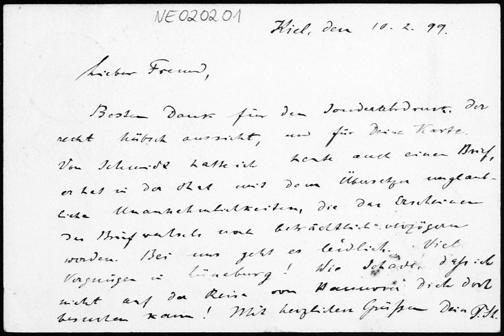 NE020201
Kiel, den 10. 2. 99.
Lieber Freund,
Besten Dank für den Sonderabdruck, der
recht hübsch aussieht, und für Deine Karte.
Von Schmidt hatte ich heute auch einen Brief,
er hat in der That mit dem Übersetzer unglaub-
liche Unannehmlichkeiten, die das Erscheinen
des Briefwechsels noch beträchtlich verzögern
werden. Bei uns geht es leidlich. Viel
Vergnügen in Lüneburg! Wie schade, dass ich
nicht auf der Reise von Hannover dich dort
besuchen kann! Mit herzlichen Grüßen Dein P.St.